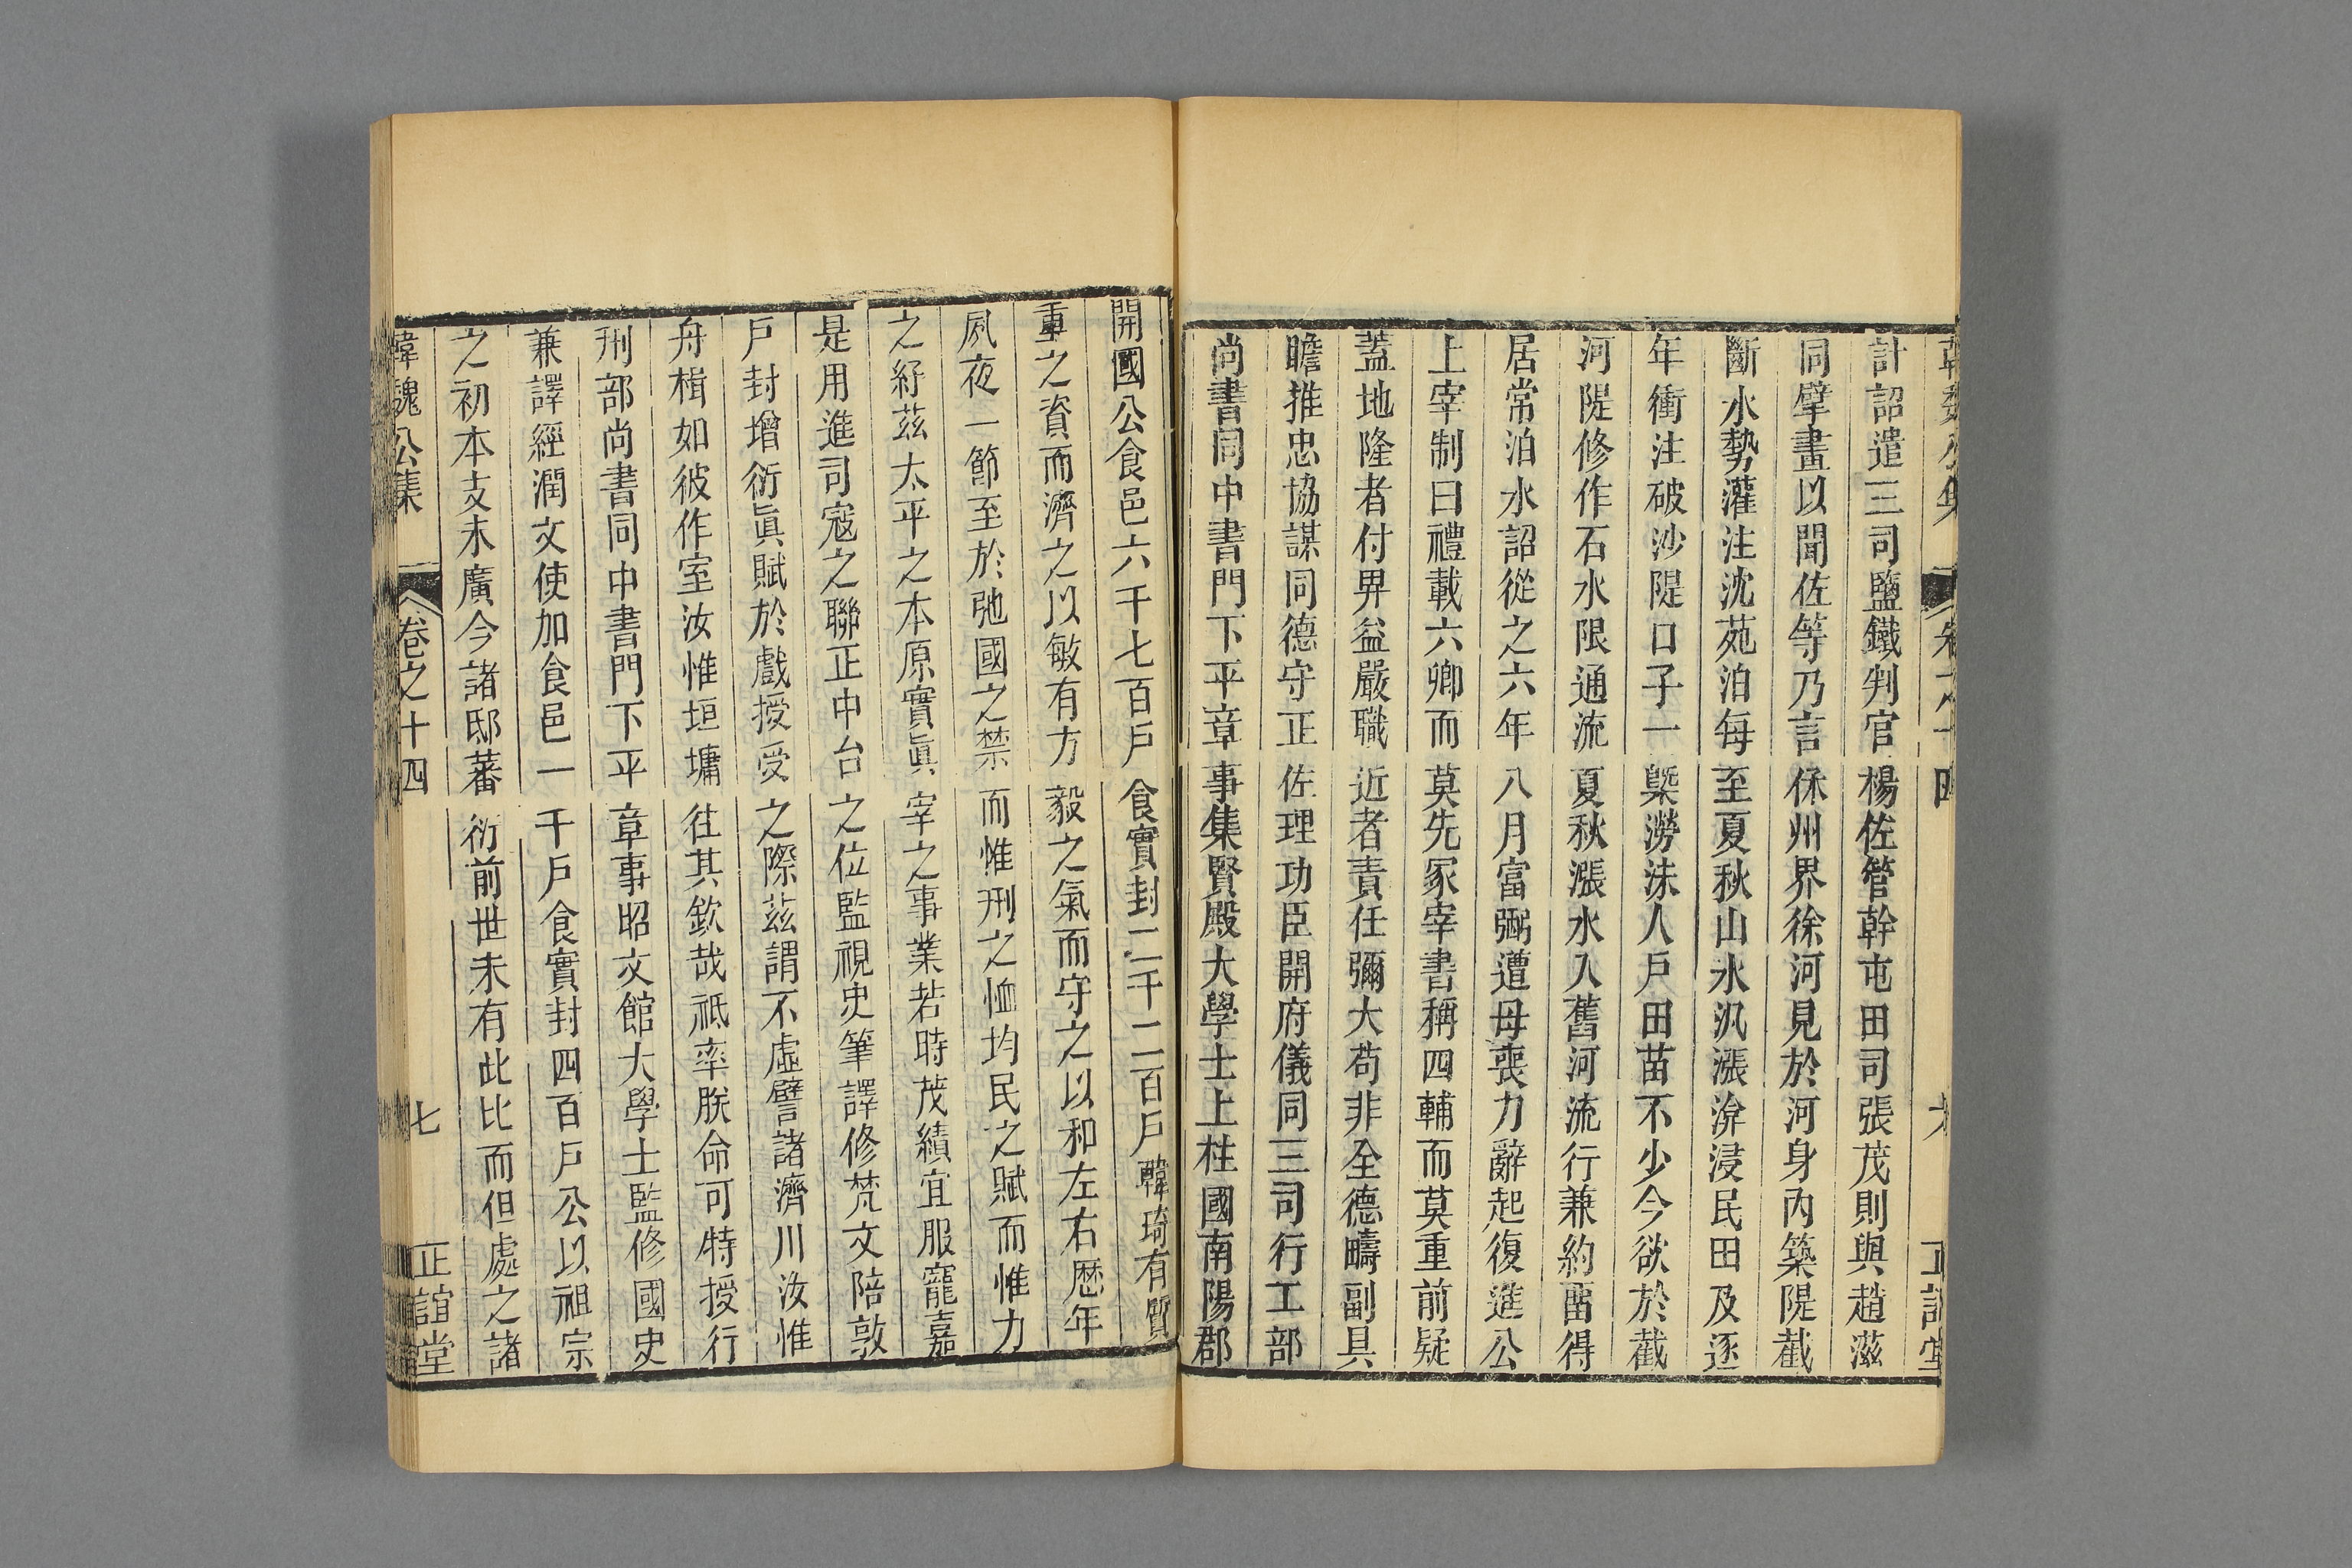 計詔遣三司鹽鐵判官楊佐管幹屯田司張茂則與趙滋
同擘畫以聞佐等乃言保州界徐河見於河身內築隄截
斷水勢灌注沈苑泊每至夏秋山水汎漲渰浸民田及逐
年衝注破沙隄口子一槩澇浸人戶田苗不少今欲於截
河隄修作石水限通流夏秋漲水入舊河流行兼約畱得
居常泊水詔從之六年八月富弼遭母喪力辭起復進公
上宰制曰禮載六卿而莫先冢宰書稱四輔而莫重前疑
蓋地隆者付畀益嚴職近者責任彌大苟非全德疇副具
瞻推忠協謀同德守正佐理功臣開府儀同三司行工部
尚書同中書門下平章事集賢殿大學士上柱國南陽郡
開國公食邑六千七百戶食實封二千二百戶韓琦有質
重之資而濟之以敏有方毅之氣而守之以和左右歷年
夙夜一節至於弛國之禁而惟刑之恤均民之賦而惟力
之紓茲太平之本原實眞宰之事業若時茂績宜服寵嘉
是用進司寇之聯正中台之位監視史筆譯修梵文陪敦
戶封增衍眞賦於戲授受之際茲謂不虛譬諸濟川汝惟
舟楫如彼作室汝惟垣墉往其欽哉祗率朕命可特授行
刑部尚書同中書門下平章事昭文館大學士監修國史
兼譯經潤文使加食邑一千戶食實封四百戶公以祖宗
之初本支未廣今諸邸蕃衍前世未有此比而但處之諸
韓魏公集 卷之十四 七 正誼堂